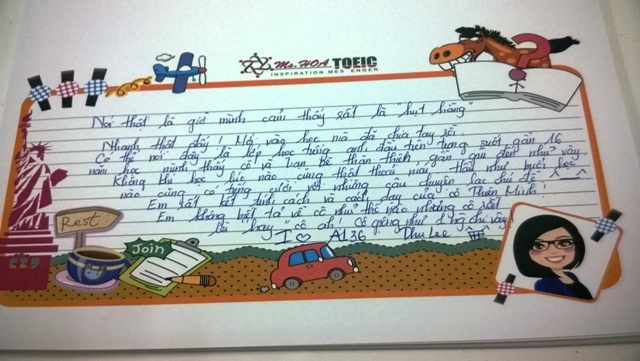 Ms. HOA TOEIC
INSPIRATION MESSENGER
Nói thật là giờ mình cảm thấy rất là "hụt hẫng"
Nhanh thật đấy! Mới vào học mà đã chia tay rồi.
Có thể nói đây là lớp học tiếng anh đầu tiên trong suốt gần 16
năm học mình thấy cô và bạn bè thân thiện, gần gũi đến như vậy.
Không khí học lúc nào cũng thật thoải mái. Hầu như buổi học
nào cũng có tiếng cười với những câu chuyện lạc chủ đề ^_^
Em rất kết tính cách và cách dạy của cô Thiên Minh!
Em không biết tả về cô như thế nào nhưng cô rất
là "hay" cô ah! Cô giống như 1 ng chị vậy!
I ♡ A136 Thu Lee
Rest
Join